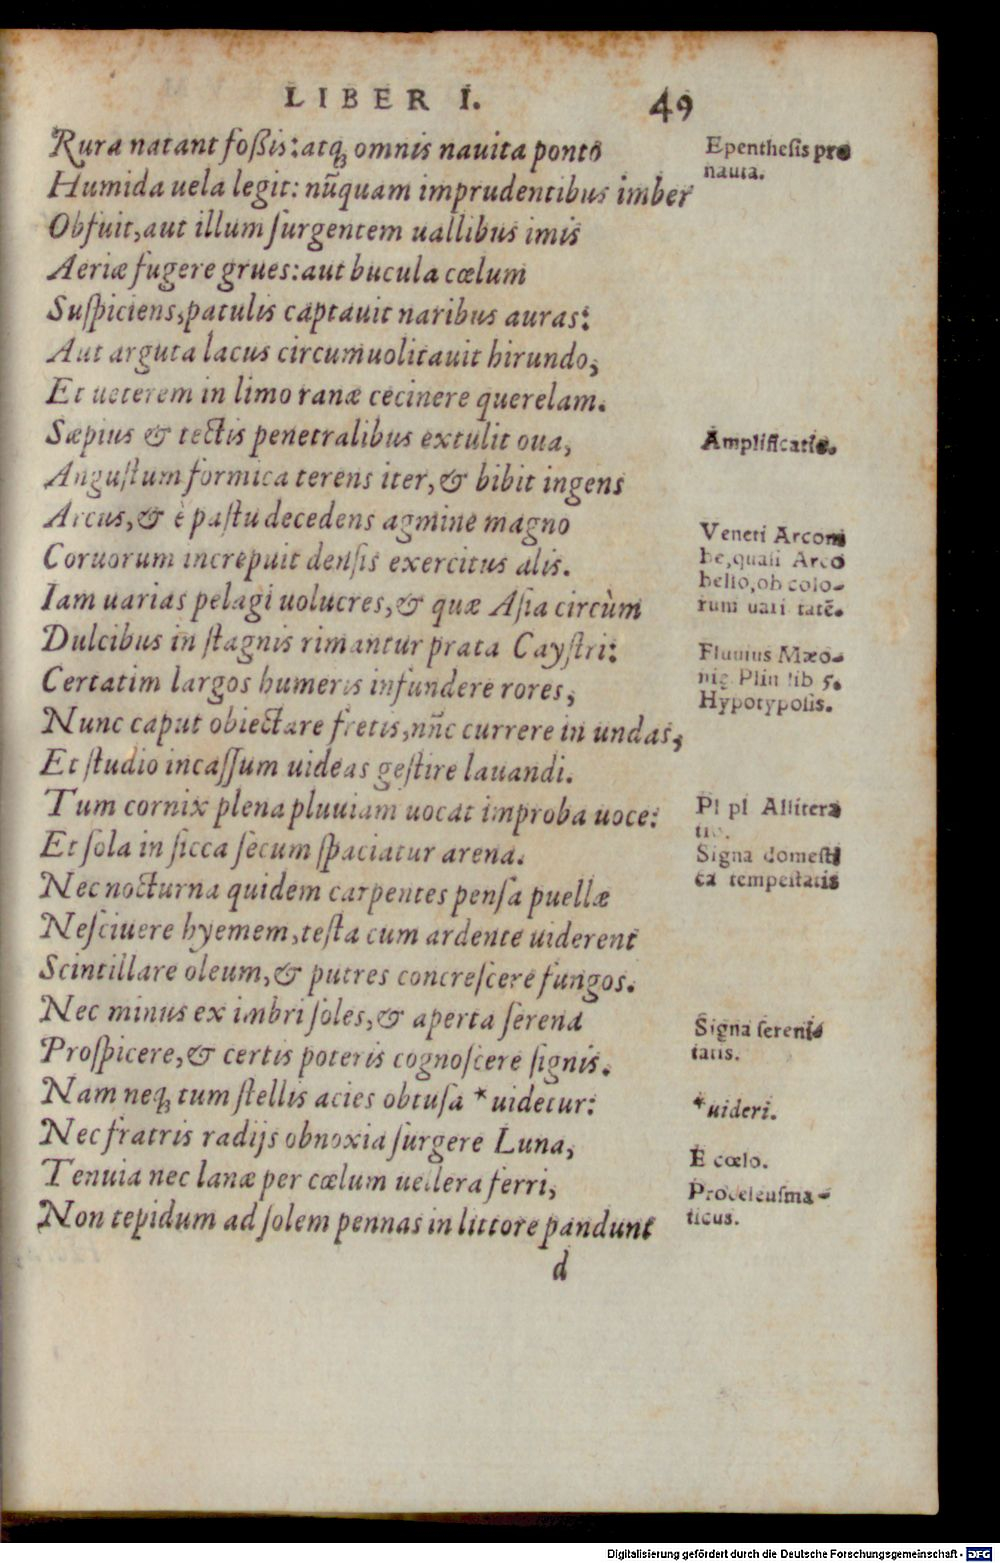 LIBER I. 49
Rura natant foßis: atq; omnis nauita ponto
Humida uela legit: nũquam imprudentibus imber
Obfuit, aut illum ſurgentem uallibus imis
Aeriæ fugere grues: aut bucula cœlum
Suſpiciens, patulis captauit naribus auras:
Aut arguta lacus circumuolitauit hirundo,
Et ueterem in limo ranæ cecinere querelam.
Sæpius & tectis penetralibus extulit oua,
Anguſtum formica terens iter, & bibit ingens
Arcus, & è paſtu decedens agmine magno
Coruorum increpuit denſis exercitus alis.
Iam uarias pelagi uolucres, & quæ Aſia circùm
Dulcibus in ſtagnis rimantur prata Cayſtri:
Certatim largos humeris infundere rores,
Nunc caput obiectare fretis, nũc currere in undas,
Et ſtudio incaſſum uideas geſtire lauandi.
Tum cornix plena pluuiam uocat improba uoce:
Et ſola in ſicca ſecum ſpaciatur arena.
Nec nocturna quidem carpentes penſa puellæ
Neſciuere hyemem, teſta cum ardente uiderent
Scintillare oleum, & putres concreſcere fungos.
Nec minus ex imbri ſoles, & aperta ſerena
Proſpicere, & certis poteris cognoſcere ſignis.
Nam neq; tum ſtellis acies obtuſa *uidetur:
Nec fratris radijs obnoxia ſurgere Luna,
Tenuia nec lanæ per cœlum uellera ferri,
Non tepidum ad ſolem pennas in littore pandunt
d
Epentheſis pro
nauta.
Amplificatio.
Veneti Arcom
be, quaſi Arco
bello, ob colo-
rum uari tatẽ.
Fluuius Mæo-
nię Plin lib 5.
Hypotypoſis.
Pl pl Allitera
tio.
Signa domeſti
ca tempeſtatis
Signa ſereni-
tatis.
*uideri.
E cœlo.
Proceleuſma-
ticus.
Digitalisierung gefördert durch die Deutsche Forschungsgemeinschaft - DFG